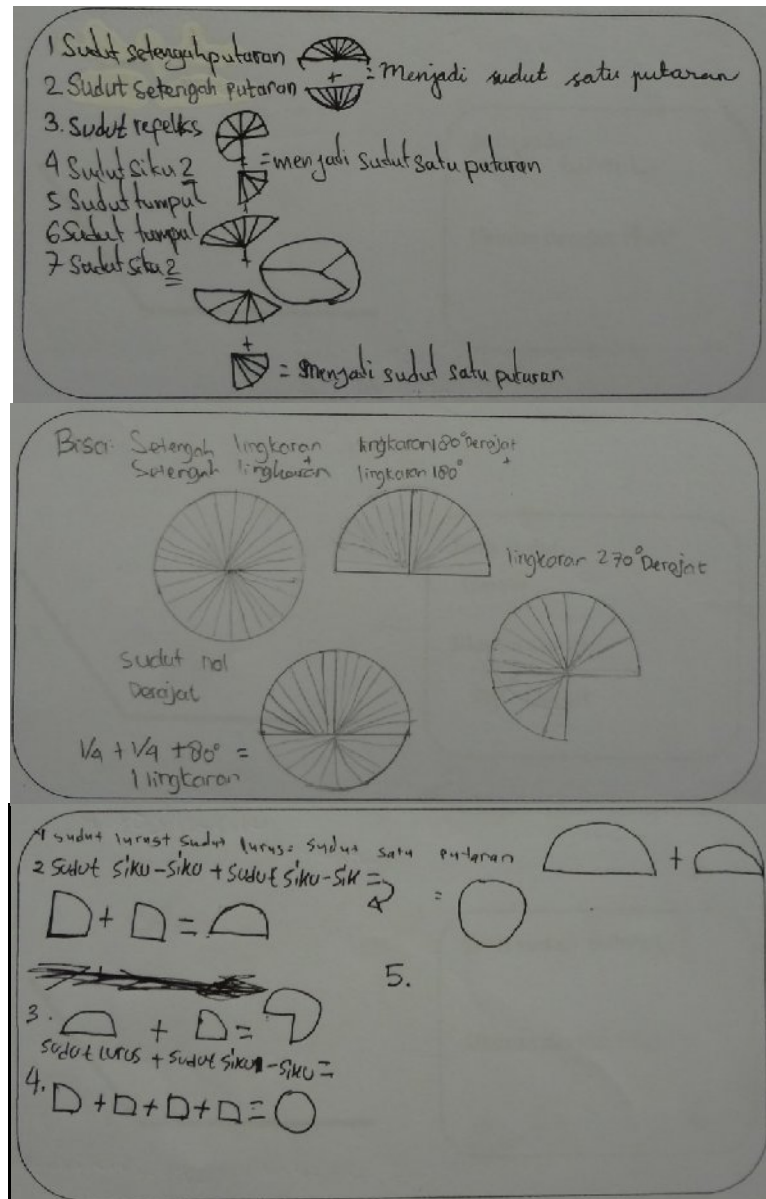 1 Sudut setengah putaran + = Menjadi sudut satu putaran
2 Sudut Setengah putaran
3. Sudut repelks
4 Sudut siku 2 + = menjadi sudut satu putaran
5 Sudut tumpul
6 Sudut tumpul +
7 Sudut siku 2 +
+
= Menjadi sudut satu putaran
Bisa: Setengah lingkaran +
Setengah lingkaran
lingkaran 180° Derajat +
lingkaran 180°
lingkaran 270° Derajat
Sudut nol
Derajat
1/4 + 1/4 + 80° =
1 lingkaran
1 sudut lurus + sudut lurus = sudut satu putaran
+
=
2 Sudut siku-siku + sudut siku-sik =
+ =
5.
3. + =
sudut lurus + sudut siku-siku =
4. + + + =